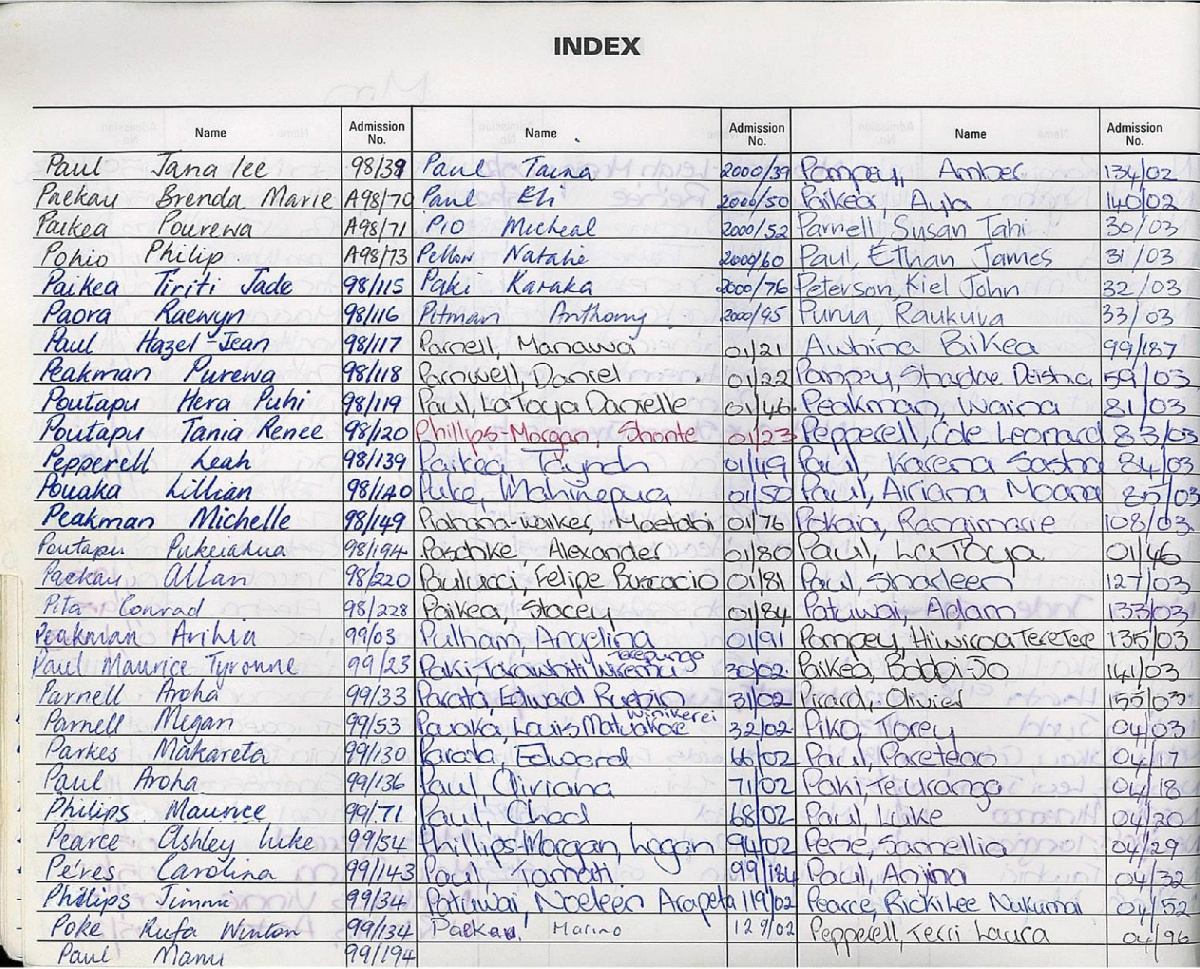 INDEX
Name Admission No. Name Admission No. Name Admission No.
Paul Jana lee 98/39 Paul Taina 2000/39 Pompey, Amber 134/02
Paekau Brenda Marie A98/70 Paul Eli 2000/50 Paikea, Ayla 140/02
Paikea Pourewa A98/71 Pio Micheal 2000/52 Parnell Susan Tahi 30/03
Pohio Philip A98/73 Pellow Natalie 2000/60 Paul, Ethan James 31/03
Paikea Tiriti Jade 98/115 Paki Karaka 2000/76 Peterson, Kiel John 32/03
Paora Raewyn 98/116 Pitman Anthony 2000/95 Purua, Raukura 33/03
Paul Hazel-Jean 98/117 Parnell, Manawa 01/21 Awhina Paikea 99/187
Peakman Purewa 98/118 Parnwell, Daniel 01/22 Pompey, Shadae 59/03
Poutapu Hera Puhi 98/119 Paul, LaToya Danielle 01/46 Peakman, Waina 81/03
Poutapu Tania Renee 98/120 Phillips-Morgan, Shonte 01/23 Pepperell, Cole Leonard 83/03
Pepperell Leah 98/139 Paikea, 01/49 Paul, Karena Sasha 84/03
Pouaka Lillian 98/140 Puke, Mahinepua 01/50 Paul, Airiana Moana 85/03
Peakman Michelle 98/149 01/76 Pokaia, Rangimarie 108/03
Poutapu 98/194 Paschke, Alexander 01/80 Paul, LaToya 01/46
Paekau Allan 98/220 Paulucci, Felipe 01/81 Paul, Sharleen 127/03
Pita Conrad 98/228 Paikea, Stacey 01/84 Patuwai, Adam 133/03
Peakman Arihia 99/03 Pulham, Angelina 01/91 Pompey, 135/03
Paul Maurice Tyronne 99/23 Paki, 30/02 Paikea, Bobbi-Jo 141/03
Parnell Aroha 99/33 Parata, Edward 31/02 Picard, Olivier 155/03
Parnell Megan 99/53 Pouaka, Louis 32/02 Pika, Torey 04/03
Parkes Makareta 99/130 Parata, Edward 66/02 Paul, Pareteao 04/17
Paul Aroha 99/136 Paul, Qiriana 71/02 Paki, Te uranga 04/18
Philips Maurice 99/71 Paul, Chad 68/02 Paul, Luke 04/20
Pearce Ashley Luke 99/54 Phillips-Morgan, Logan 94/02 Pene, Samellia 04/29
Pe'res Carolina 99/143 Paul, Tamati 99/184 Paul, Anjina 04/32
Phillips Jimmi 99/34 Patuwai, Noeleen Arapeta 119/02 Pearce, Rickilee Nukumai 04/52
Poke Rufa Winton 99/134 Paekau, Marino 129/02 Pepperell, Terri Laura 04/96
Paul Manu 99/194